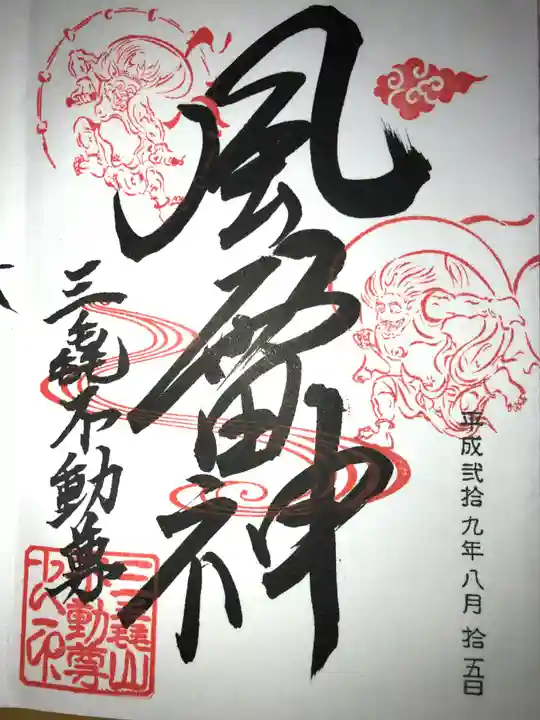 平成弐拾九年八月拾五日
風雷神
三毳不動尊
三毳山
不動尊
之印